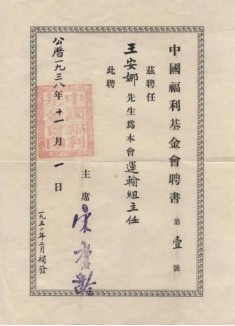 中國福利基金會聘書
第壹號
茲聘任
王安娜先生為本會運輸組主任
此聘
主席
宋慶齡
公曆一九三八年十一月一日
一九五一年二月補發